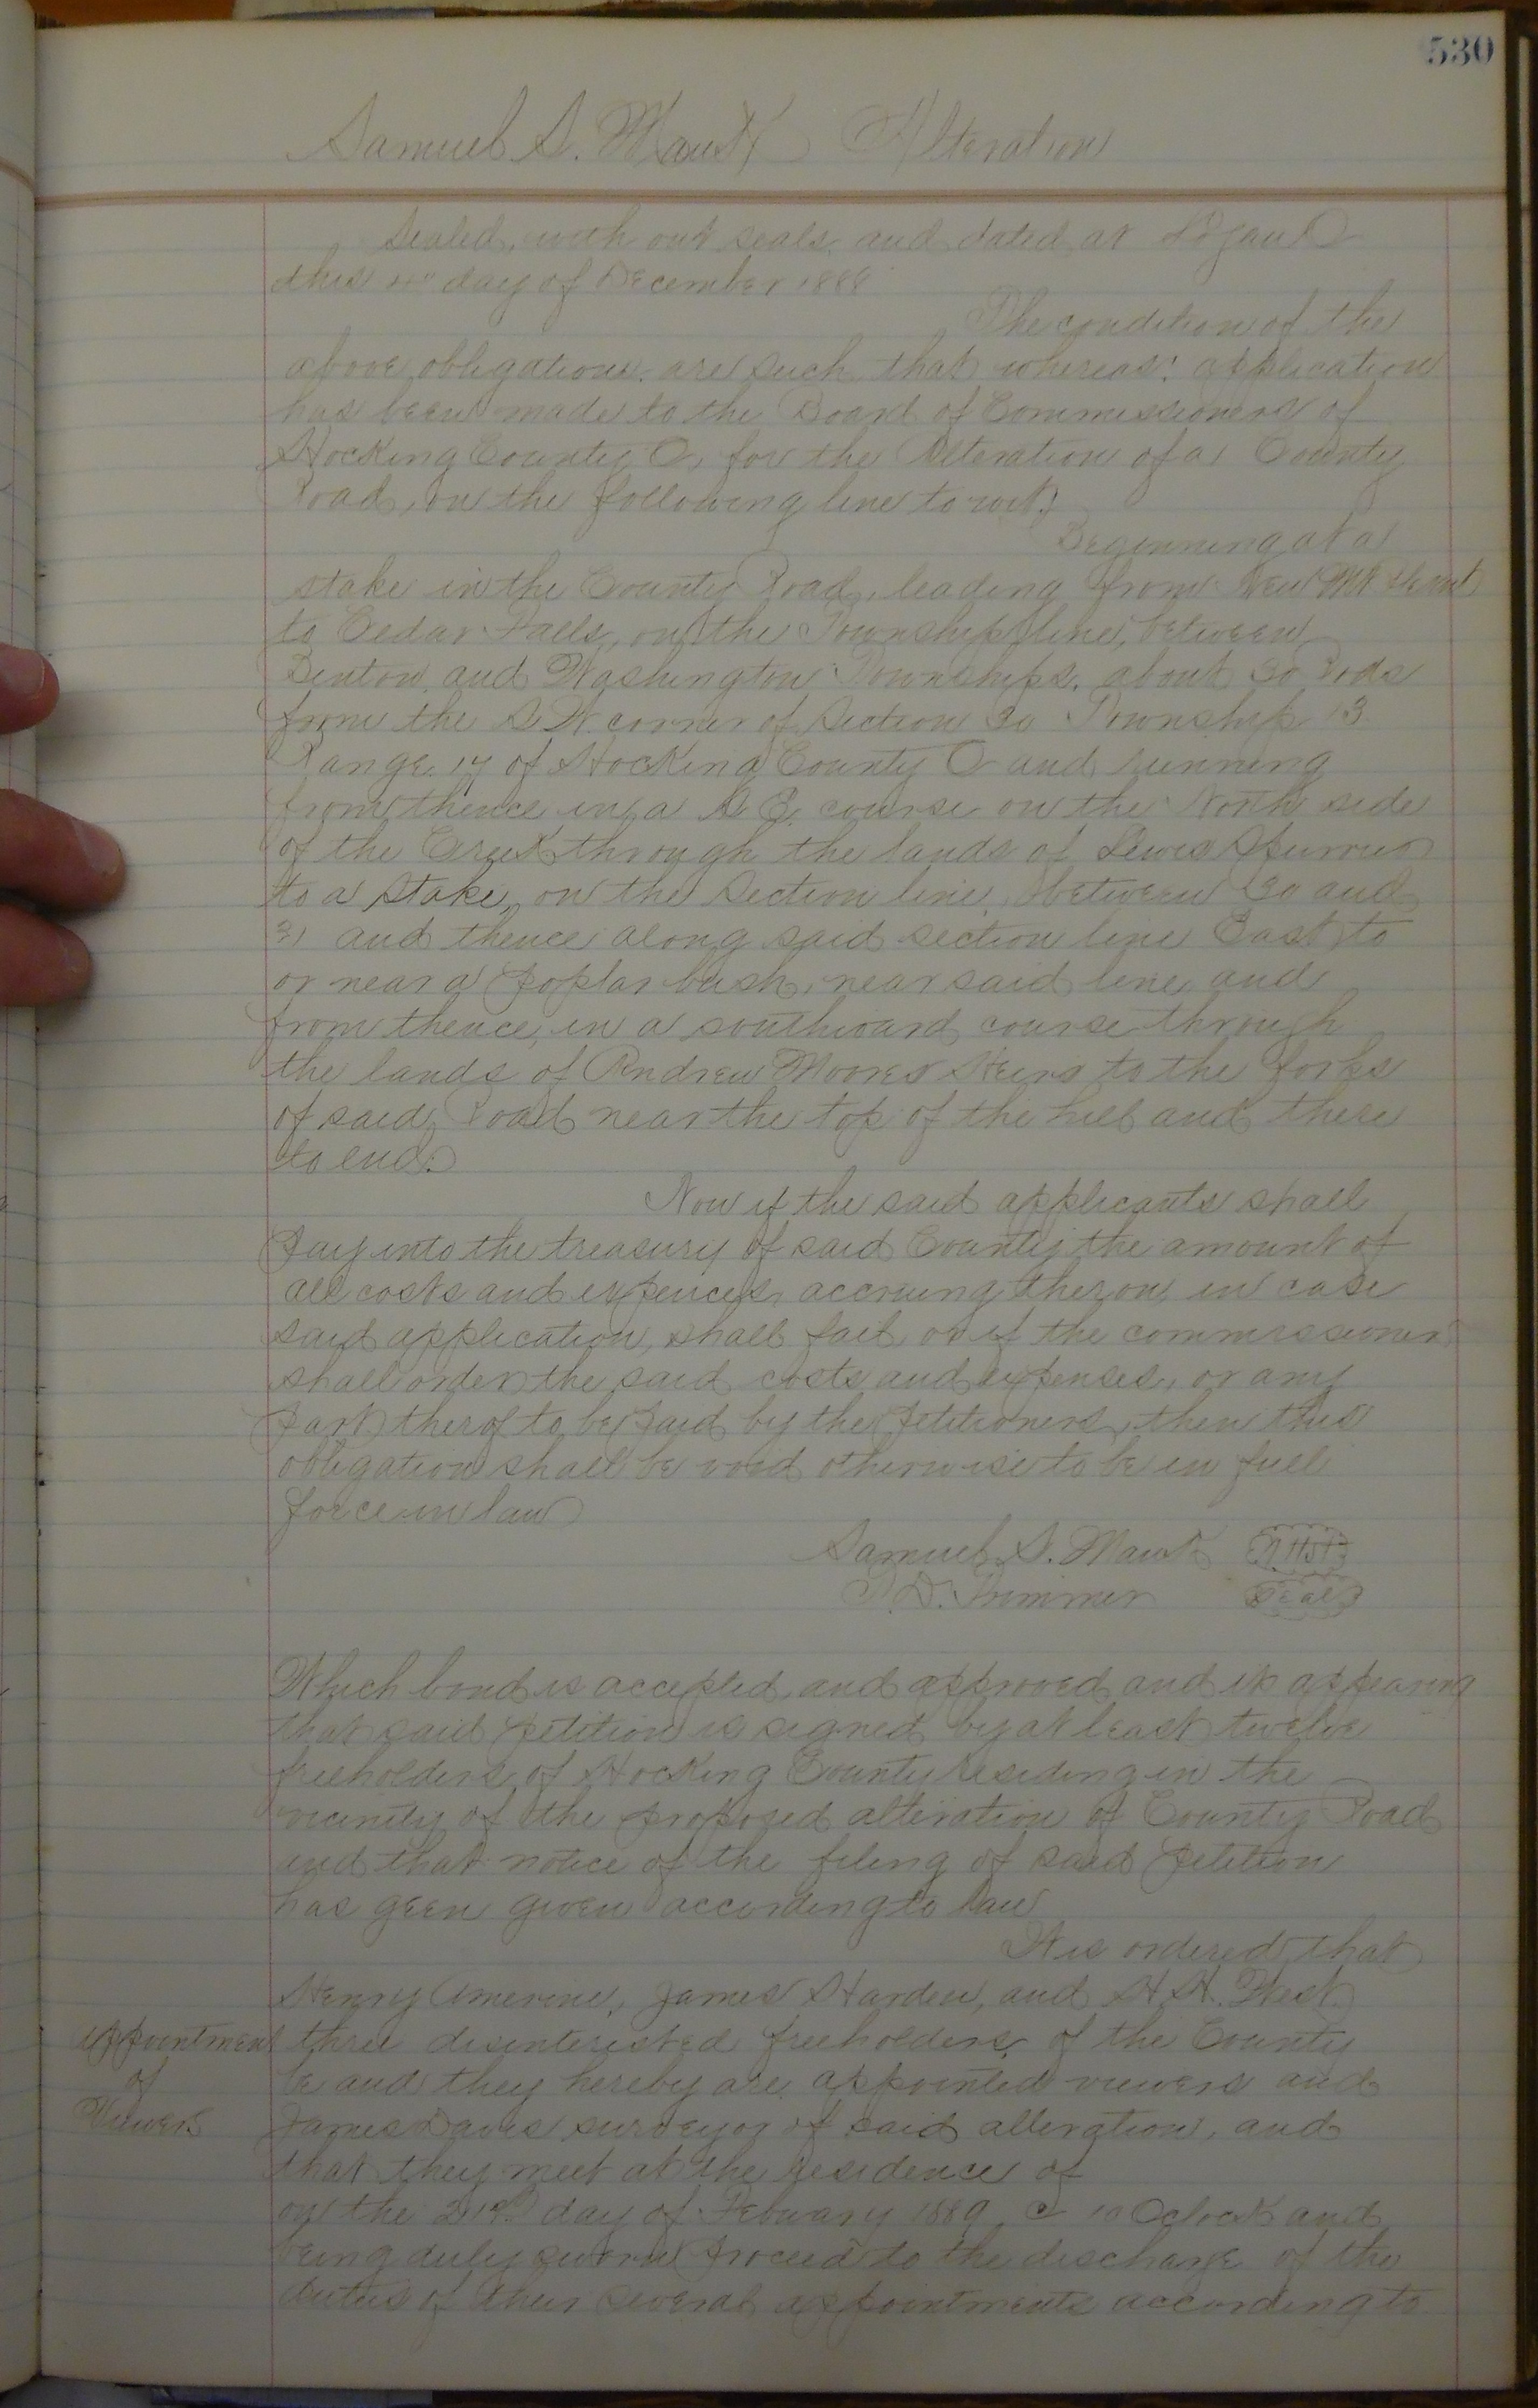 530
Samuel S. Mauk Alteration
Sealed, with our seals, and dated at Logan O
this 4" day of December 1888
The condition of the
above obligations are such that whereas: application
has been made to the Board of Commissioners of
Hocking County O, for the Alteration of a County
Road, on the following line to wit:)
Beginning at a
stake in the County Road, leading from New Mt
to Cedar Falls, on the Township line, between
Benton, and Washington Townships, about 30 Rods
from the S.W. corner of Section 30 Township 13
Range 17 of Hocking County O and running
from thence in a S E. course on the North side
of the Creek through the lands of Lewis
to a Stake, on the Section line, between 30 and
31 and thence along said section line East to
or near a poplar bush, near said line, and
from thence, in a southward course through
the lands of Andrew Moores Heirs to the forks
of said Road near the top of the hill and there
to end.
Now if the said applicants shall
pay into the treasury of said County the amount of
all costs and expences, accruing theron, in case
said application, shall fail, or if the commissioners
shall order the said costs and expenses, or any
part therof to be paid by the petitioners, then this
obligation shall be void otherwise to be in full
force in law
Samuel S. Mauk
P.D. Trimmer Seal
Which bond is accepted, and approved and it appearing
that said petition is signed by at least twelve
freeholders of Hocking County residing in the
vicinity of the proposed alteration of County Road
and that notice of the filing of said petition
has geen given according to law
It is ordered that
Henry Amerine, James Harden, and H.H. West
Appointment
of
Viewers
three disinterested freeholders, of the County
be and they hereby are, appointed viewers and
James Davis surveyor of said alteration, and
that they meet at the residence of
on the 21st day of Febuary 1889 @ 10 Oclock and
being duly sworn proceed to the discharge of the
duties of their several appointments according to